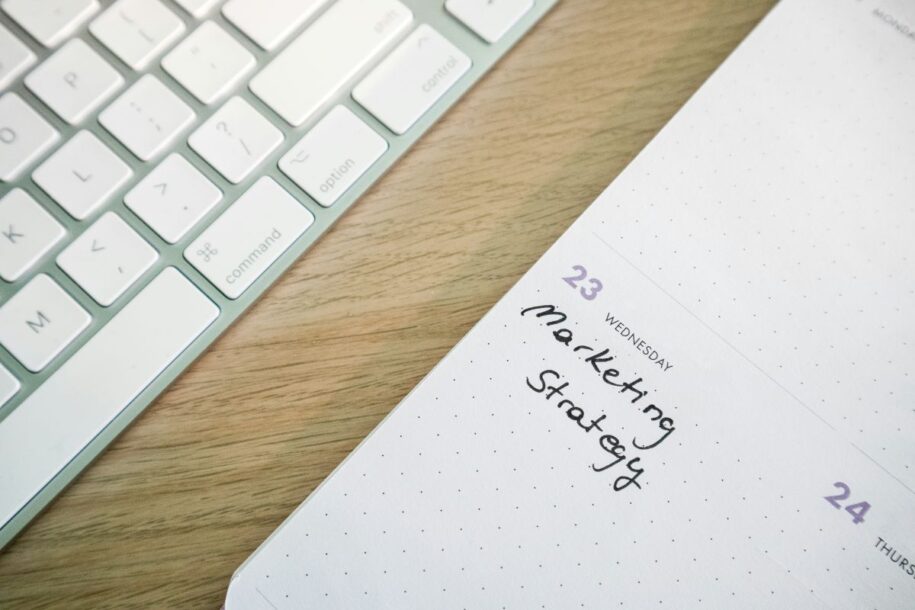 shift
control
P
O
L
K
M
:
;
"
'
<
,
>
.
?
/
option
⌘
command
23
WEDNESDAY
Marketing
Strategy
24